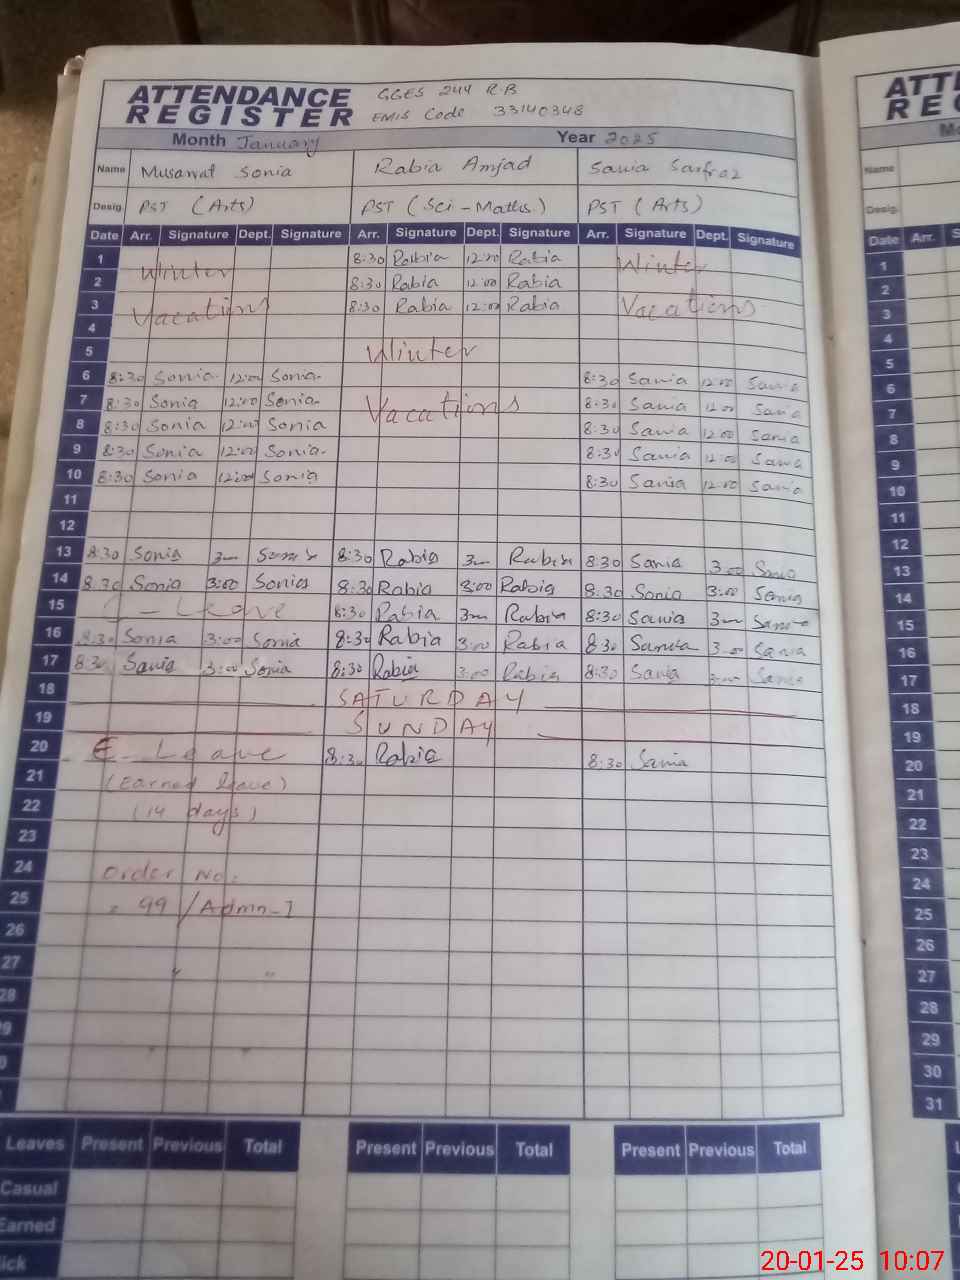 ATTENDANCE REGISTER GGES 244 R.B
EMIS Code 33140348
Month January Year 2025
Name Musarrat Sonia Rabia Amjad Sania Sarfraz
Desig. PST (Arts) PST (Sci - Maths.) PST (Arts)
Date Arr. Signature Dept. Signature Arr. Signature Dept. Signature Arr. Signature Dept. Signature
1 Winter 8:30 Rabia 12:00 Rabia Winter
2 8:30 Rabia 12:00 Rabia
3 Vacations 8:30 Rabia 12:00 Rabia Vacations
4
5 Winter
6 8:30 Sonia 12:00 Sonia 8:30 Sania 12:00 Sania
7 8:30 Sonia 12:00 Sonia Vacations 8:30 Sania 12:00 Sania
8 8:30 Sonia 12:00 Sonia 8:30 Sania 12:00 Sania
9 8:30 Sonia 12:00 Sonia 8:30 Sania 12:00 Sania
10 8:30 Sonia 12:00 Sonia 8:30 Sania 12:00 Sania
11
12
13 8:30 Sonia 3 Sonia 8:30 Rabia 3 Rabia 8:30 Sania 3:00 Sania
14 8:30 Sonia 3:00 Sonia 8:30 Rabia 3:00 Rabia 8:30 Sania 3:00 Sania
15 - Leave 8:30 Rabia 3 Rabia 8:30 Sania 3 Sania
16 8:30 Sonia 3:00 Sonia 8:30 Rabia 3:00 Rabia 8:30 Sania 3:00 Sania
17 8:30 Sonia 3:00 Sonia 8:30 Rabia 3:00 Rabia 8:30 Sania 3 Sania
18 SATURDAY
19 SUNDAY
20 E - Leave 8:30 Rabia 8:30 Sania
21 (Earned leave)
22 (14 days)
23
24 Order No:
25 99 /Admn-I
26
27
28
Leaves Present Previous Total Present Previous Total Present Previous Total
Casual
Earned
ATT
RE
Name
Desig.
Date Arr.
1
2
3
4
5
6
7
8
9
10
11
12
13
14
15
16
17
18
19
20
21
22
23
24
25
26
27
28
29
30
31
20-01-25 10:07